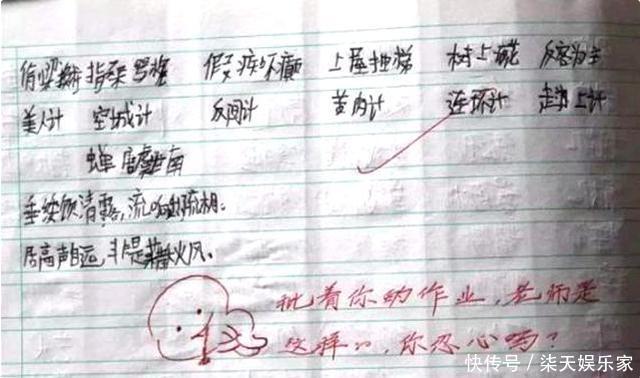 偷梁换柱 指桑骂槐 假痴不癫 上屋抽梯 树上开花 反客为主
美人计 空城计 反间计 苦肉计 连环计 走为上计
蝉 唐 虞世南
垂緌饮清露,流响出疏桐。
居高声自远,非是藉秋风。
批着你的作业,老师是
这样的,你忍心吗?
快传号/柒天娱乐家